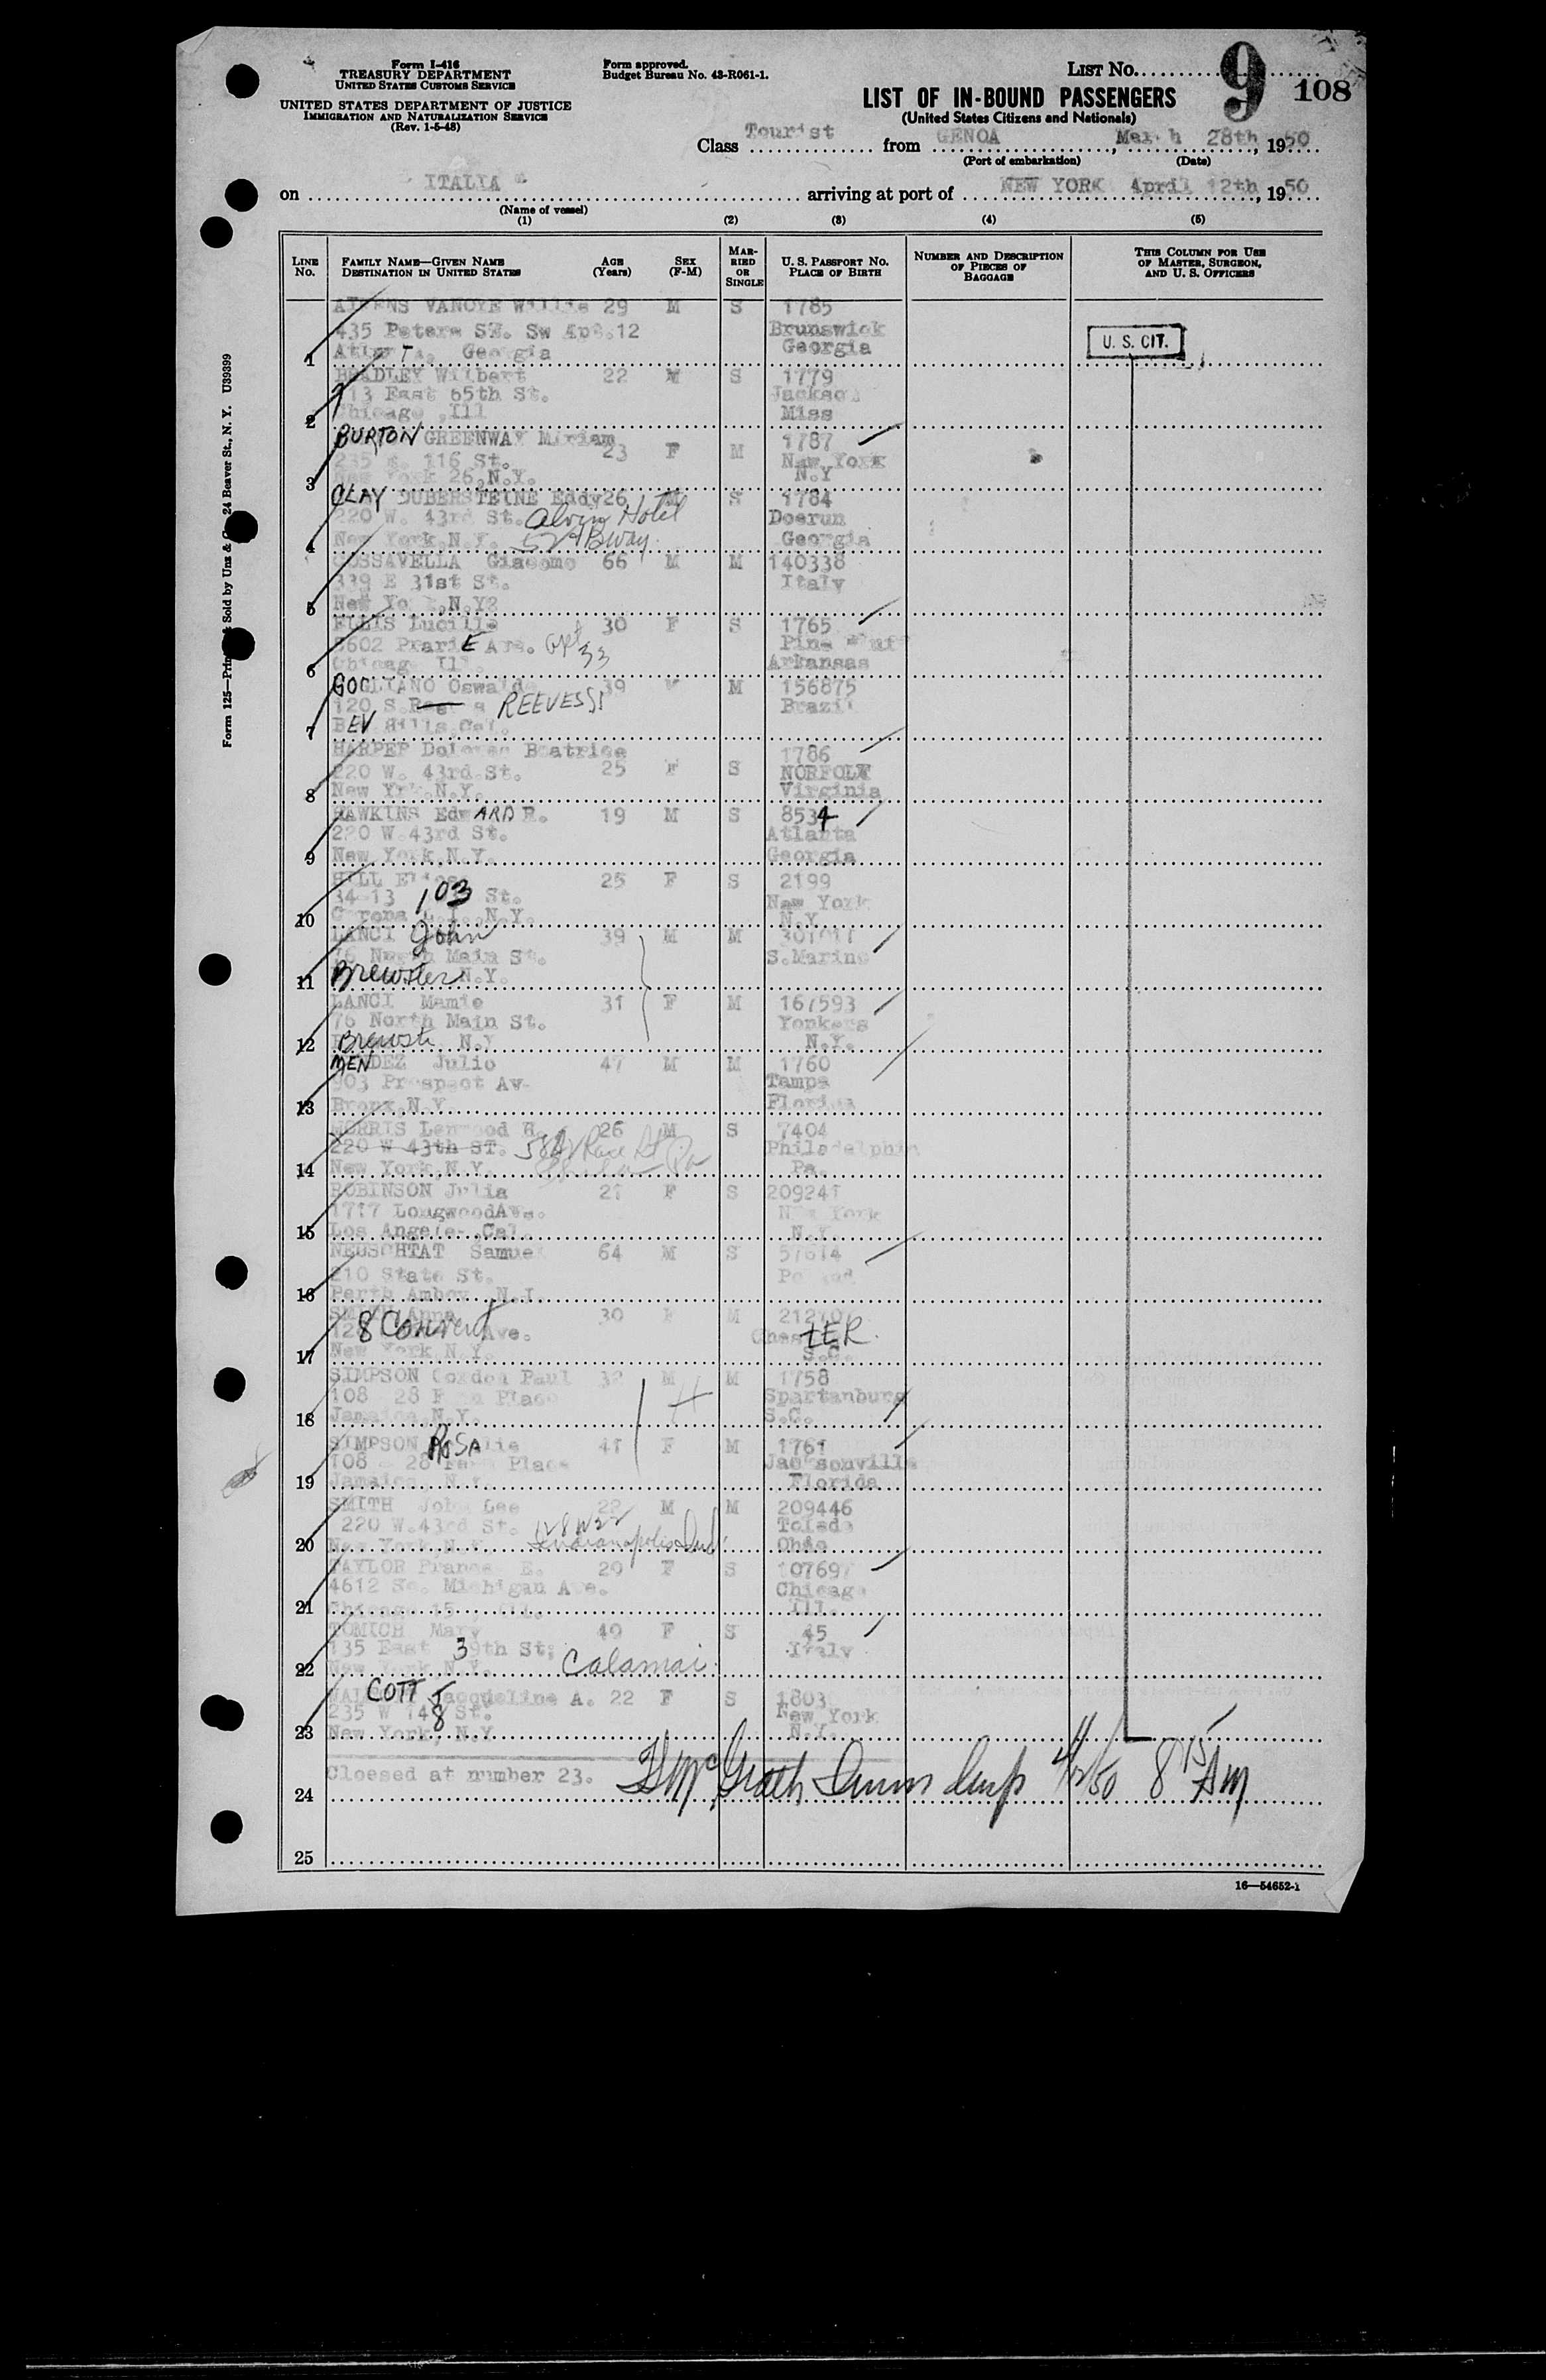 Form I-416
TREASURY DEPARTMENT
UNITED STATES CUSTOMS SERVICE
UNITED STATES DEPARTMENT OF JUSTICE
IMMIGRATION AND NATURALIZATION SERVICE
(Rev. 1-5-48)
Form approved.
Budget Bureau No. 43-R061-1.
LIST No. 9 108
LIST OF IN-BOUND PASSENGERS
(United States Citizens and Nationals)
Class Tourist from GENOA, March 28th, 1950
(Port of embarkation) (Date)
on ITALIA arriving at port of NEW YORK April 12th, 1950
(Name of vessel)
(1) (2) (3) (4) (5)
LINE No. FAMILY NAME—GIVEN NAME DESTINATION IN UNITED STATES AGE (Years) SEX (F-M) MARRIED OR SINGLE U. S. PASSPORT No. PLACE OF BIRTH NUMBER AND DESCRIPTION OF PIECES OF BAGGAGE THIS COLUMN FOR USE OF MASTER, SURGEON, AND U. S. OFFICERS
VANOYE Willie 29 M S 1785
435 Peters ST. Sw Apt.12 Brunswick
1 Atlanta, Georgia Georgia U. S. CIT.
BRADLEY Wilbert 22 M S 1779
713 East 65th St. Jackson
2 Chicago ,Ill Miss
BURTON GREENWAY Miriam 23 F M 1787
235 116 St. New York
3 York 26,N.Y. N.Y
CLAY DUBERSTEINE Eddy 26 M S 1784
220 W. 43rd St. Alvin Hotel Doerun
4 New York,N.Y. 52d Bway. Georgia
COSSAVELLA Giacomo 66 M M 140338
339 E 31st St. Italy
5 New York,N.Y2
ELLIS Lucille 30 F S 1765
3602 PrariE Ave. Apt 33 Pine Bluff
6 Chicago Ill. Arkansas
GOGLIANO Oswaldo 39 M 156875
120 S. REEVES Brazil
7 BEV Hills,Cal.
HARPER Dolores Beatrice 1786
220 W. 43rd.St. 25 F S NORFOLK
8 New Yrk.N.Y. Virginia
HAWKINS EdwARD R. 19 M S 8534
220 W.43rd St. Atlanta
9 New York,N.Y. Georgia
HILL 25 F S 2199
34-13 103 St. New York
10 Corona L.I.,N.Y. N.Y.
LANCI John 39 M M
76 North Main St. S.Marino
11 Brewster N.Y.
LANCI Mamie 31 F M 167593
76 North Main St. Yonkers
12 Brewste N.Y N.Y.
MENDEZ Julio 47 M M 1760
903 Prospect Av- Tampa
13 Bronx,N.Y Florida
MORRIS Lenwood R. 26 M S 7404
220 W 43th ST. Race St Philadelphia
14 New York,N.Y. Phila Pa Pa.
ROBINSON Julia 21 F S 209241
1717 LongwoodAve. New York
15 Los Angele- ,Cal. N.Y.
NEUSCHTAT Samuel 64 M S 57614
210 State St. Poland
16 Perth Amboy ,N.J.
SMITH Anna 30 F M
128 Convent Ave. ChesTER.
17 New York,N.Y. S.C.
SIMPSON Gordon Paul 32 M M 1758
108 28 Place Spartanburg
18 Jamaica,N.Y. S.C.
SIMPSON ROSAlie 41 F M 1761
108 - 28 Place Jacksonville
19 Jamaica, N.Y. Florida
SMITH John Lee 22 M M 209446
220 W.43rd St. Toledo
20 New York,N.Y. Indianapolis Ind Ohio
TAYLOR Frances E. 29 F S
4612 So. Michigan Ave. Chicago
21 Chicago 15 Ill. Ill.
TOMICH Mary 49 F S 45
135 East 39th St; Italy
22 New York,N.Y. Calamai
WALCOTT Jacqueline A. 22 F S 1803
235 W 148 St. New York
23 New York, N.Y N.Y.
Cloesed at number 23.
24 McGrath Imm Insp 4/12/50 8 15 AM
25
16—54652-1